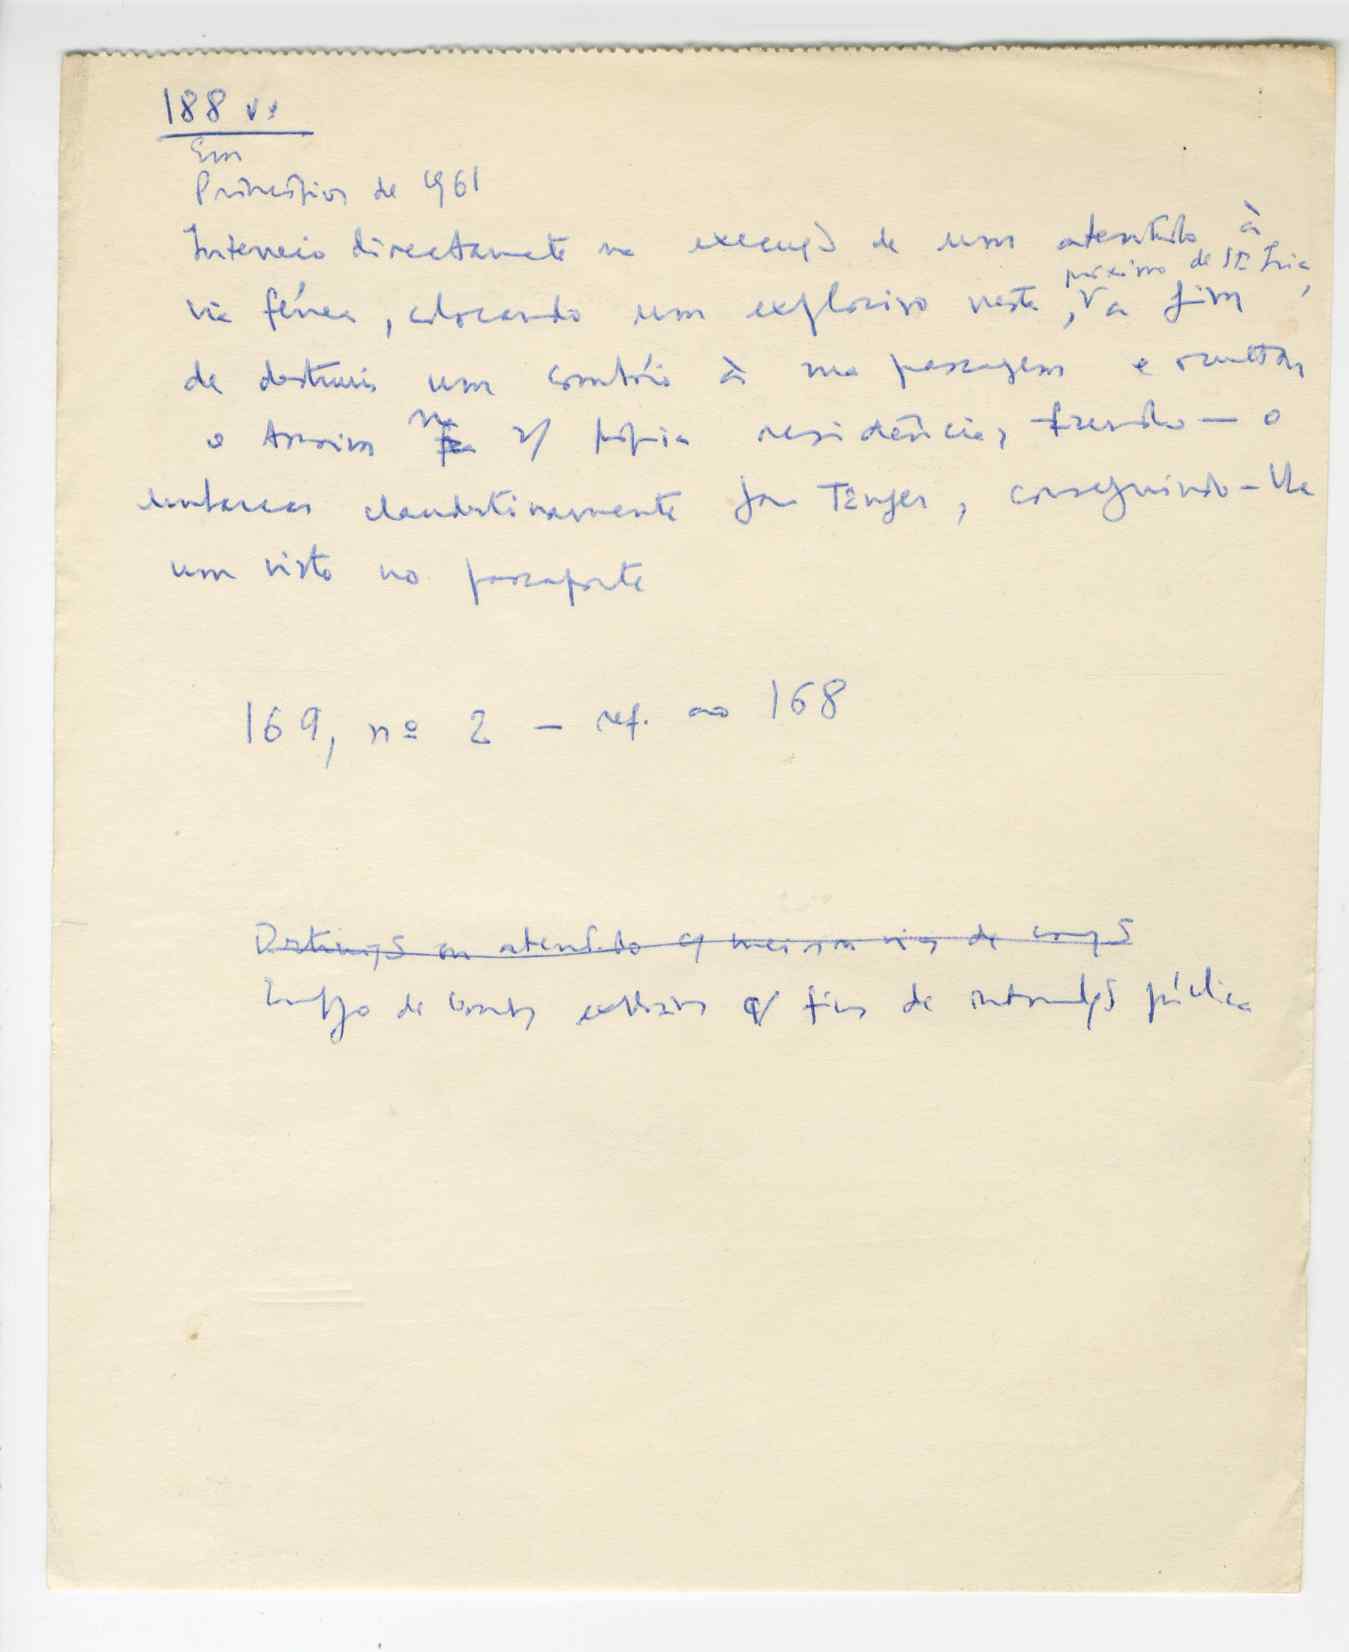 188 v.
Em
Princípios de 1961
Interveio directamente na execução de um atentado à
próximo de Stª Iria,
via férrea, colocando um explosivo nesta, a fim
de destruir um comboio à sua passagem e ocultou
o na
s/ própria residência, fazendo-o
embarcar clandestinamente para Tânger, conseguindo-lhe
um visto no passaporte
169, nº 2 - ref. ao 168
Destruição ou atentado c/ meios ou vias de comç
Emprego de bombas explosivas c/ fins de intimidação pública